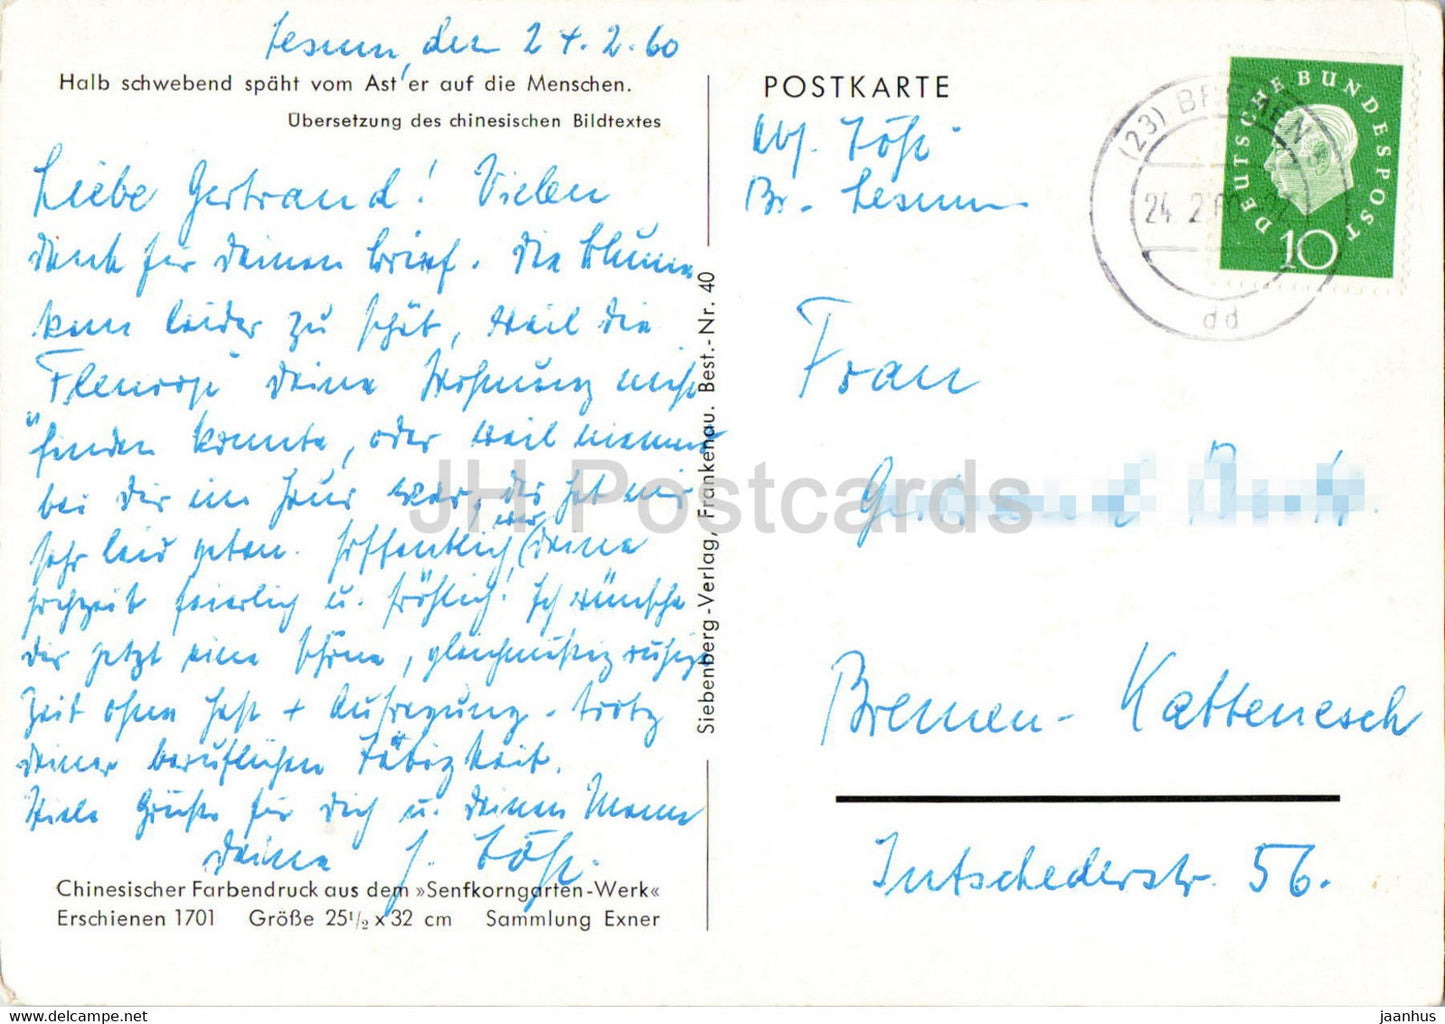 Lesum, den 24.2.60
Halb schwebend späht vom Ast er auf die Menschen.
Übersetzung des chinesischen Bildtextes
Liebe Gertraud! Vielen
Dank für deinen Brief. Die Blumen
kam leider zu spät, weil die
deine Wohnung nicht
finden konnte, oder weil niemand
bei dir im Haus war, das tat mir
sehr leid. Hoffentlich war deine
Hochzeit feierlich u. fröhlich! Ich wünsche
dir jetzt eine schöne, gleichmäßig ruhige
Zeit ohne Hast + Aufregung - trotz
deiner beruflichen Tätigkeit.
Viele Grüße für dich u. deinen Mann
deine
Chinesischer Farbendruck aus dem »Senfkorngarten-Werk«
Erschienen 1701 Größe 25 1/2 x 32 cm Sammlung Exner
Siebenberg-Verlag, Frankenau. Best.-Nr. 40
POSTKARTE
Abs.
Br. Lesum
DEUTSCHE BUNDESPOST
10
(23) BREMEN
24. 2. 60
dd
Frau
Bremen-Kattenesch
Intschederstr. 56.
JH Postcards
jaanhus